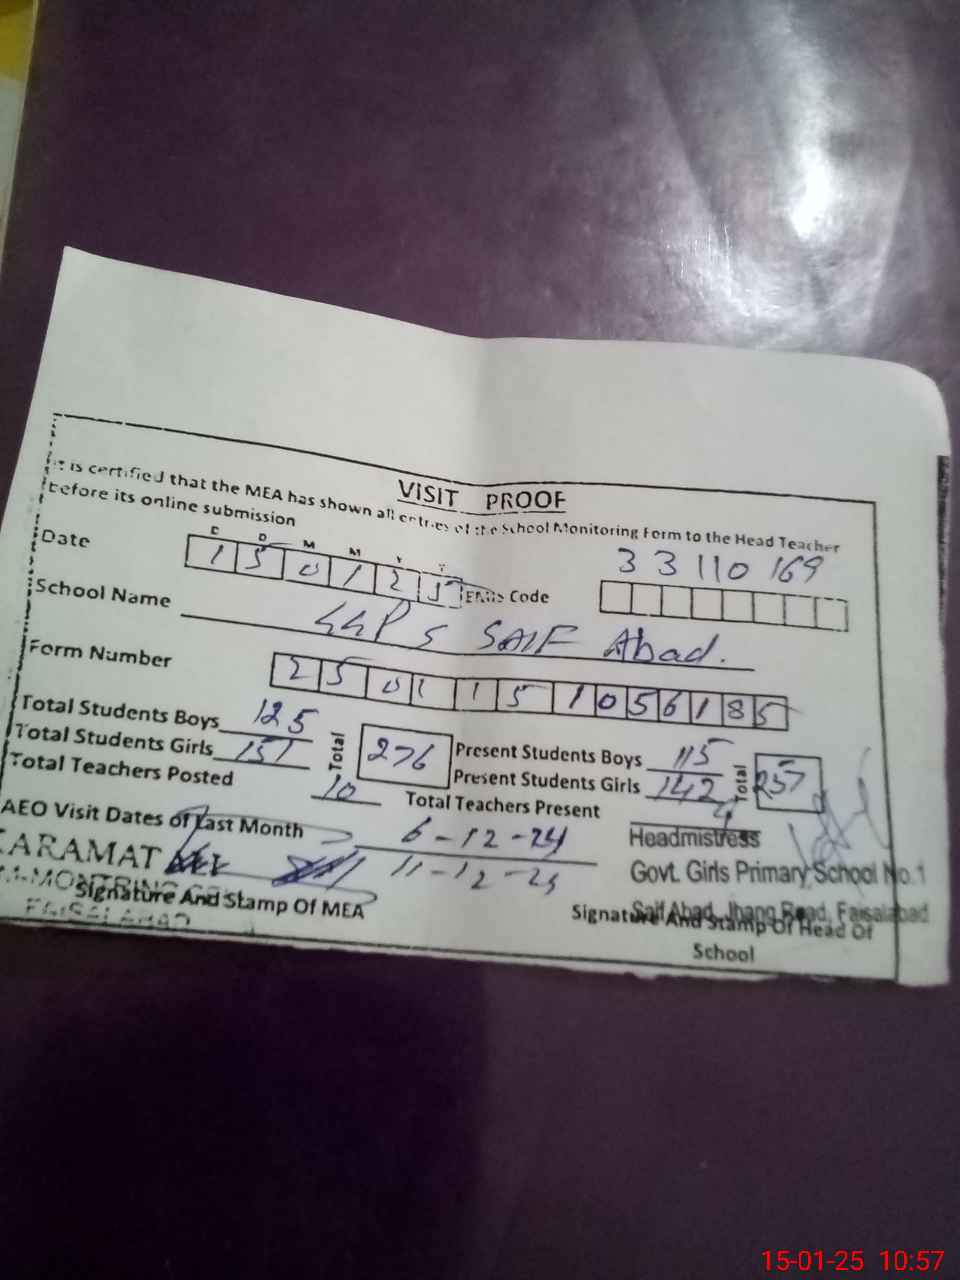 VISIT PROOF
It is certified that the MEA has shown all entries of the School Monitoring Form to the Head Teacher
before its online submission
D D M M Y Y
Date 15 01 25 EMIS Code 33110169
School Name GGPS SAIF Abad.
Form Number 2501151056185
Total Students Boys 125
Total Students Girls 151
Total 276
Present Students Boys 115
Present Students Girls 142
Total 257
Total Teachers Posted 10 Total Teachers Present 9
AEO Visit Dates of Last Month 6-12-24
11-12-24
KARAMAT ALI
FAISALABAD
Signature And Stamp Of MEA
Headmistress
Govt. Girls Primary School No.1
Saif Abad, Jhang Road, Faisalabad
Signature And Stamp Of Head Of
School
15-01-25 10:57